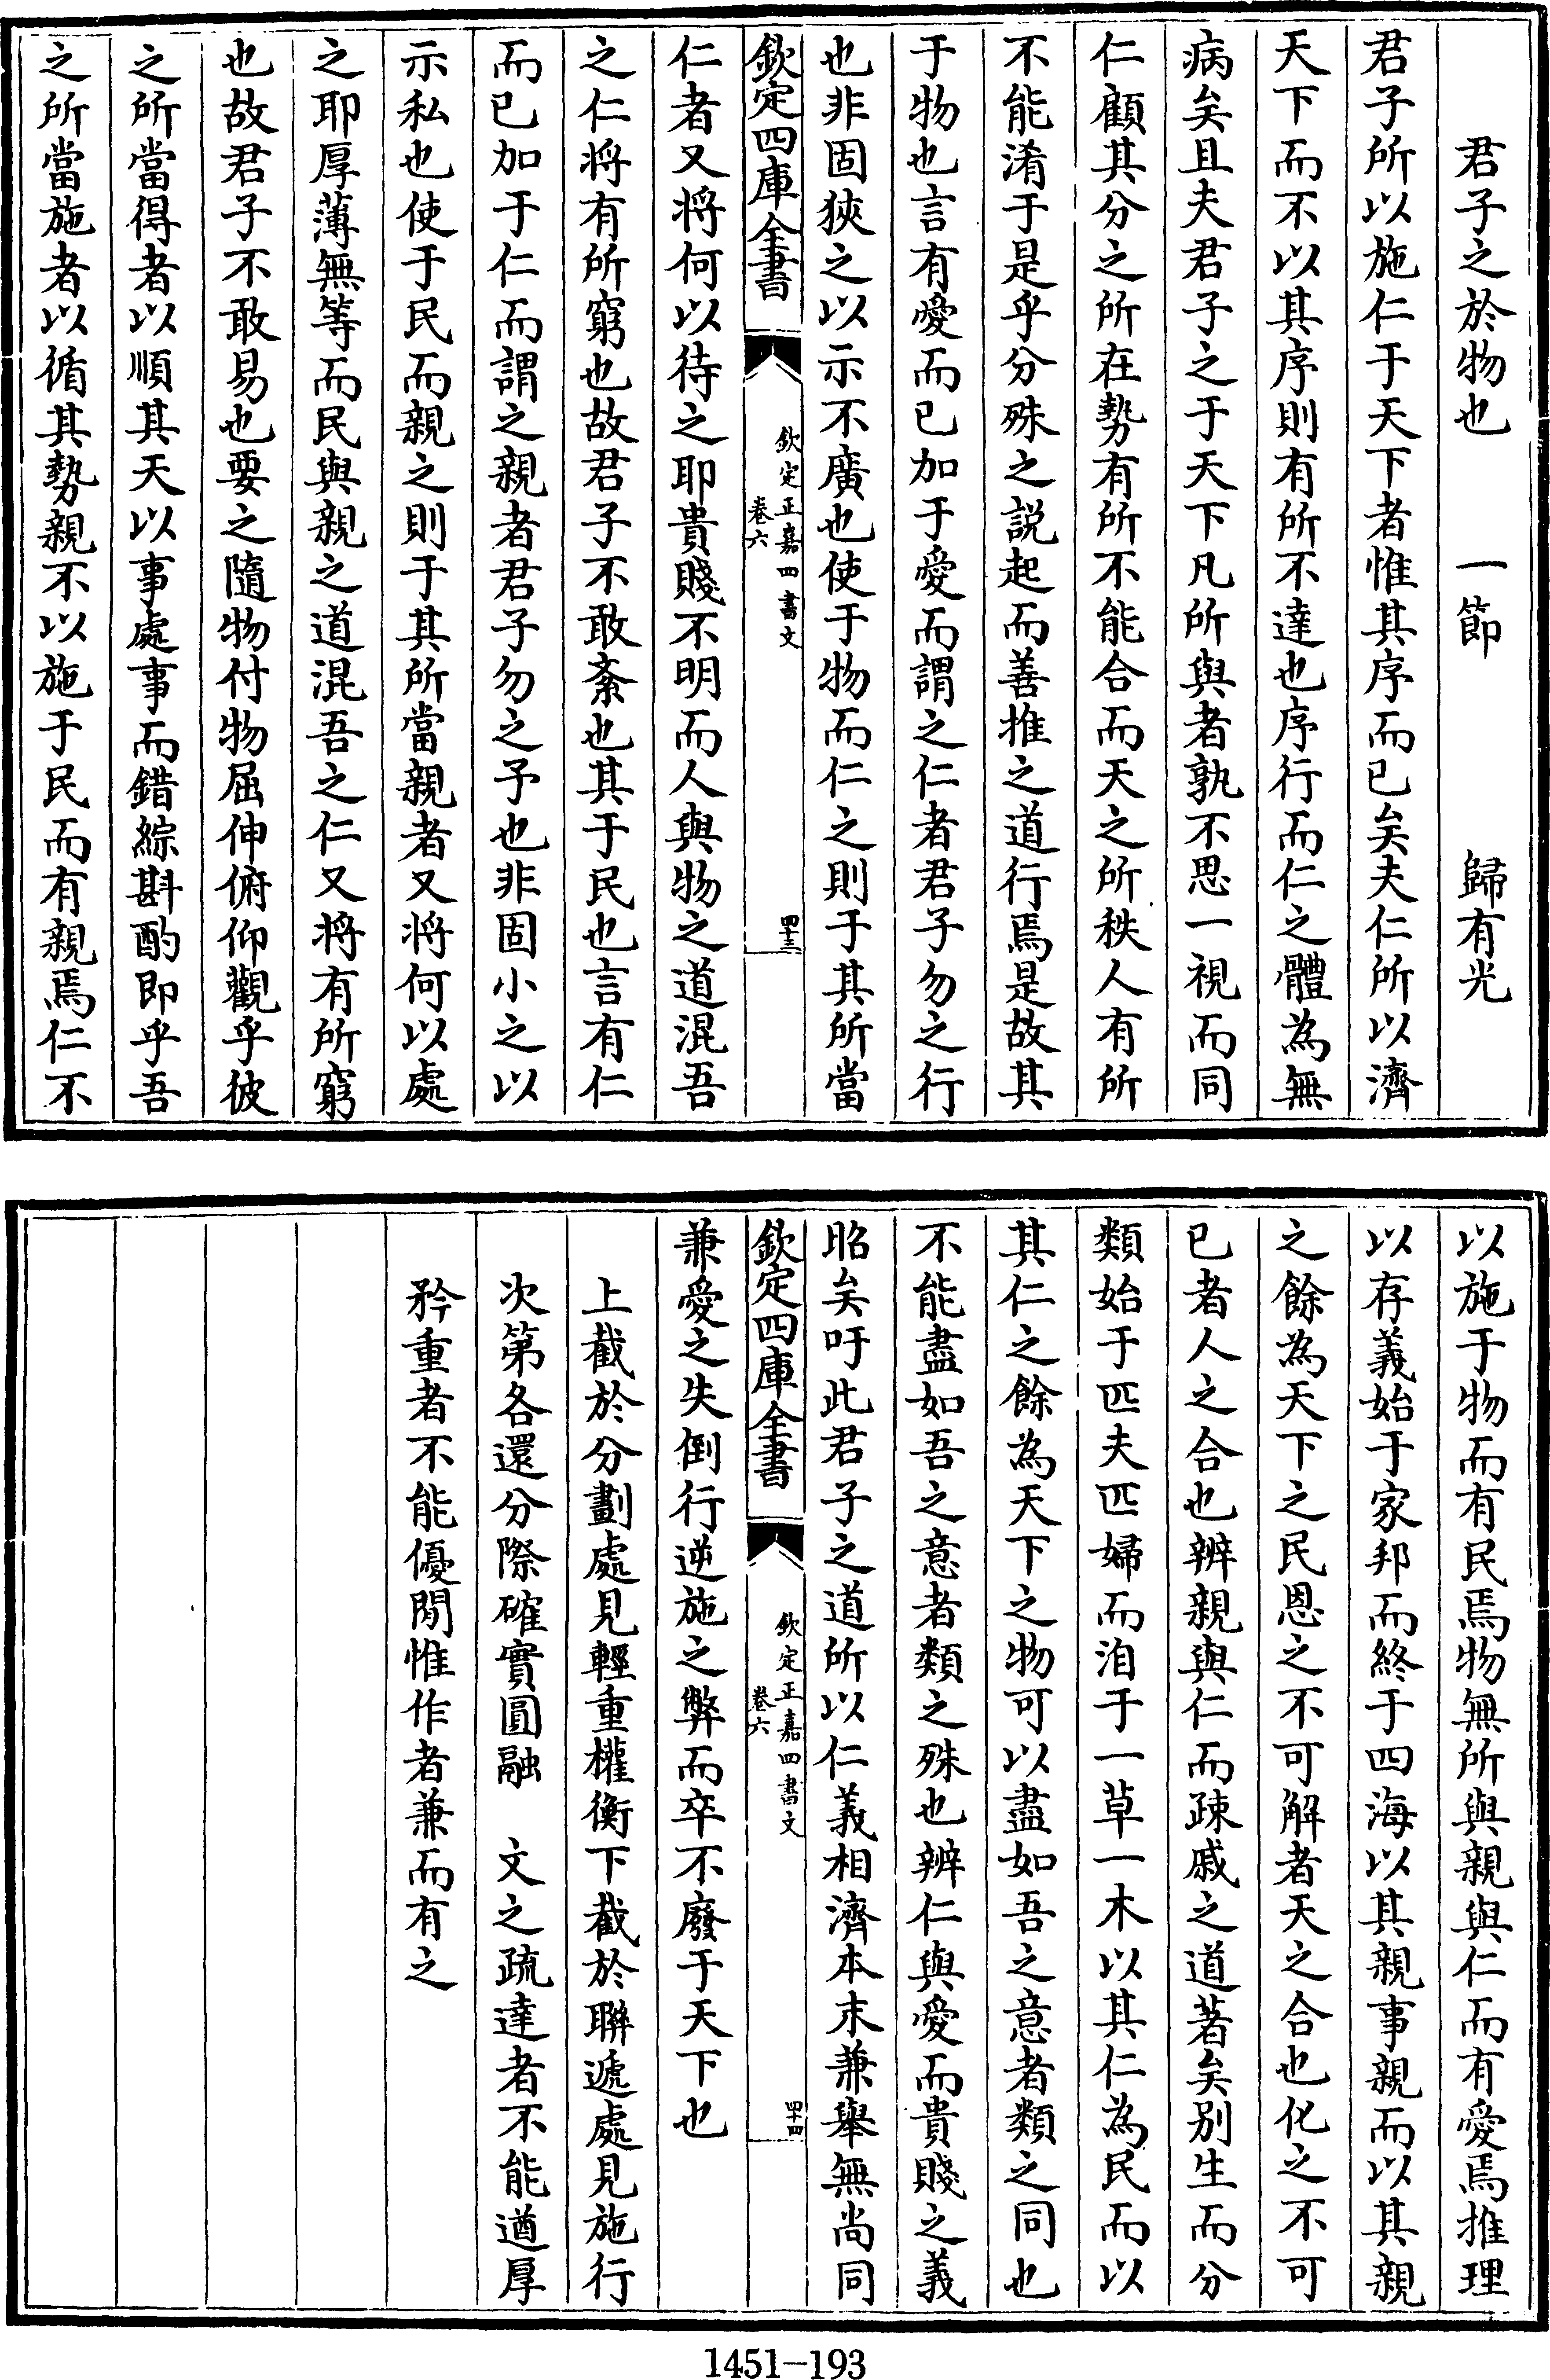 君子之於物也　一節　歸有光
君子所以施仁于天下者惟其序而已矣夫仁所以濟
天下而不以其序則有所不達也序行而仁之體為無
病矣且夫君子之于天下凡所與者孰不思一視而同
仁顧其分之所在勢有所不能合而天之所秩人有所
不能淆于是乎分殊之説起而善推之道行焉是故其
于物也言有愛而已加于愛而謂之仁者君子勿之行
也非固狹之以示不廣也使于物而仁之則于其所當
欽定四庫全書
欽定正嘉四書文
卷六
四十三
仁者又将何以待之耶貴賤不明而人與物之道混吾
之仁将有所窮也故君子不敢紊也其于民也言有仁
而已加于仁而謂之親者君子勿之予也非固小之以
示私也使于民而親之則于其所當親者又将何以處
之耶厚薄無等而民與親之道混吾之仁又将有所窮
也故君子不敢易也要之隨物付物屈伸俯仰觀乎彼
之所當得者以順其天以事處事而錯綜斟酌即乎吾
之所當施者以循其勢親不以施于民而有親焉仁不
以施于物而有民焉物無所與親與仁而有愛焉推理
以存義始于家邦而終于四海以其親事親而以其親
之餘為天下之民恩之不可解者天之合也化之不可
已者人之合也辨親與仁而疎戚之道著矣別生而分
類始于匹夫匹婦而洎于一草一木以其仁為民而以
其仁之餘為天下之物可以盡如吾之意者類之同也
不能盡如吾之意者類之殊也辨仁與愛而貴賤之義
昭矣吁此君子之道所以仁義相濟本末兼舉無尚同
欽定四庫全書
欽定正嘉四書文
卷六
四十四
兼愛之失倒行逆施之弊而卒不廢于天下也
上截於分劃處見輕重權衡下截於聯遞處見施行
次第各還分際確實圓融　文之疏達者不能遒厚
矜重者不能優閒惟作者兼而有之
1451-193